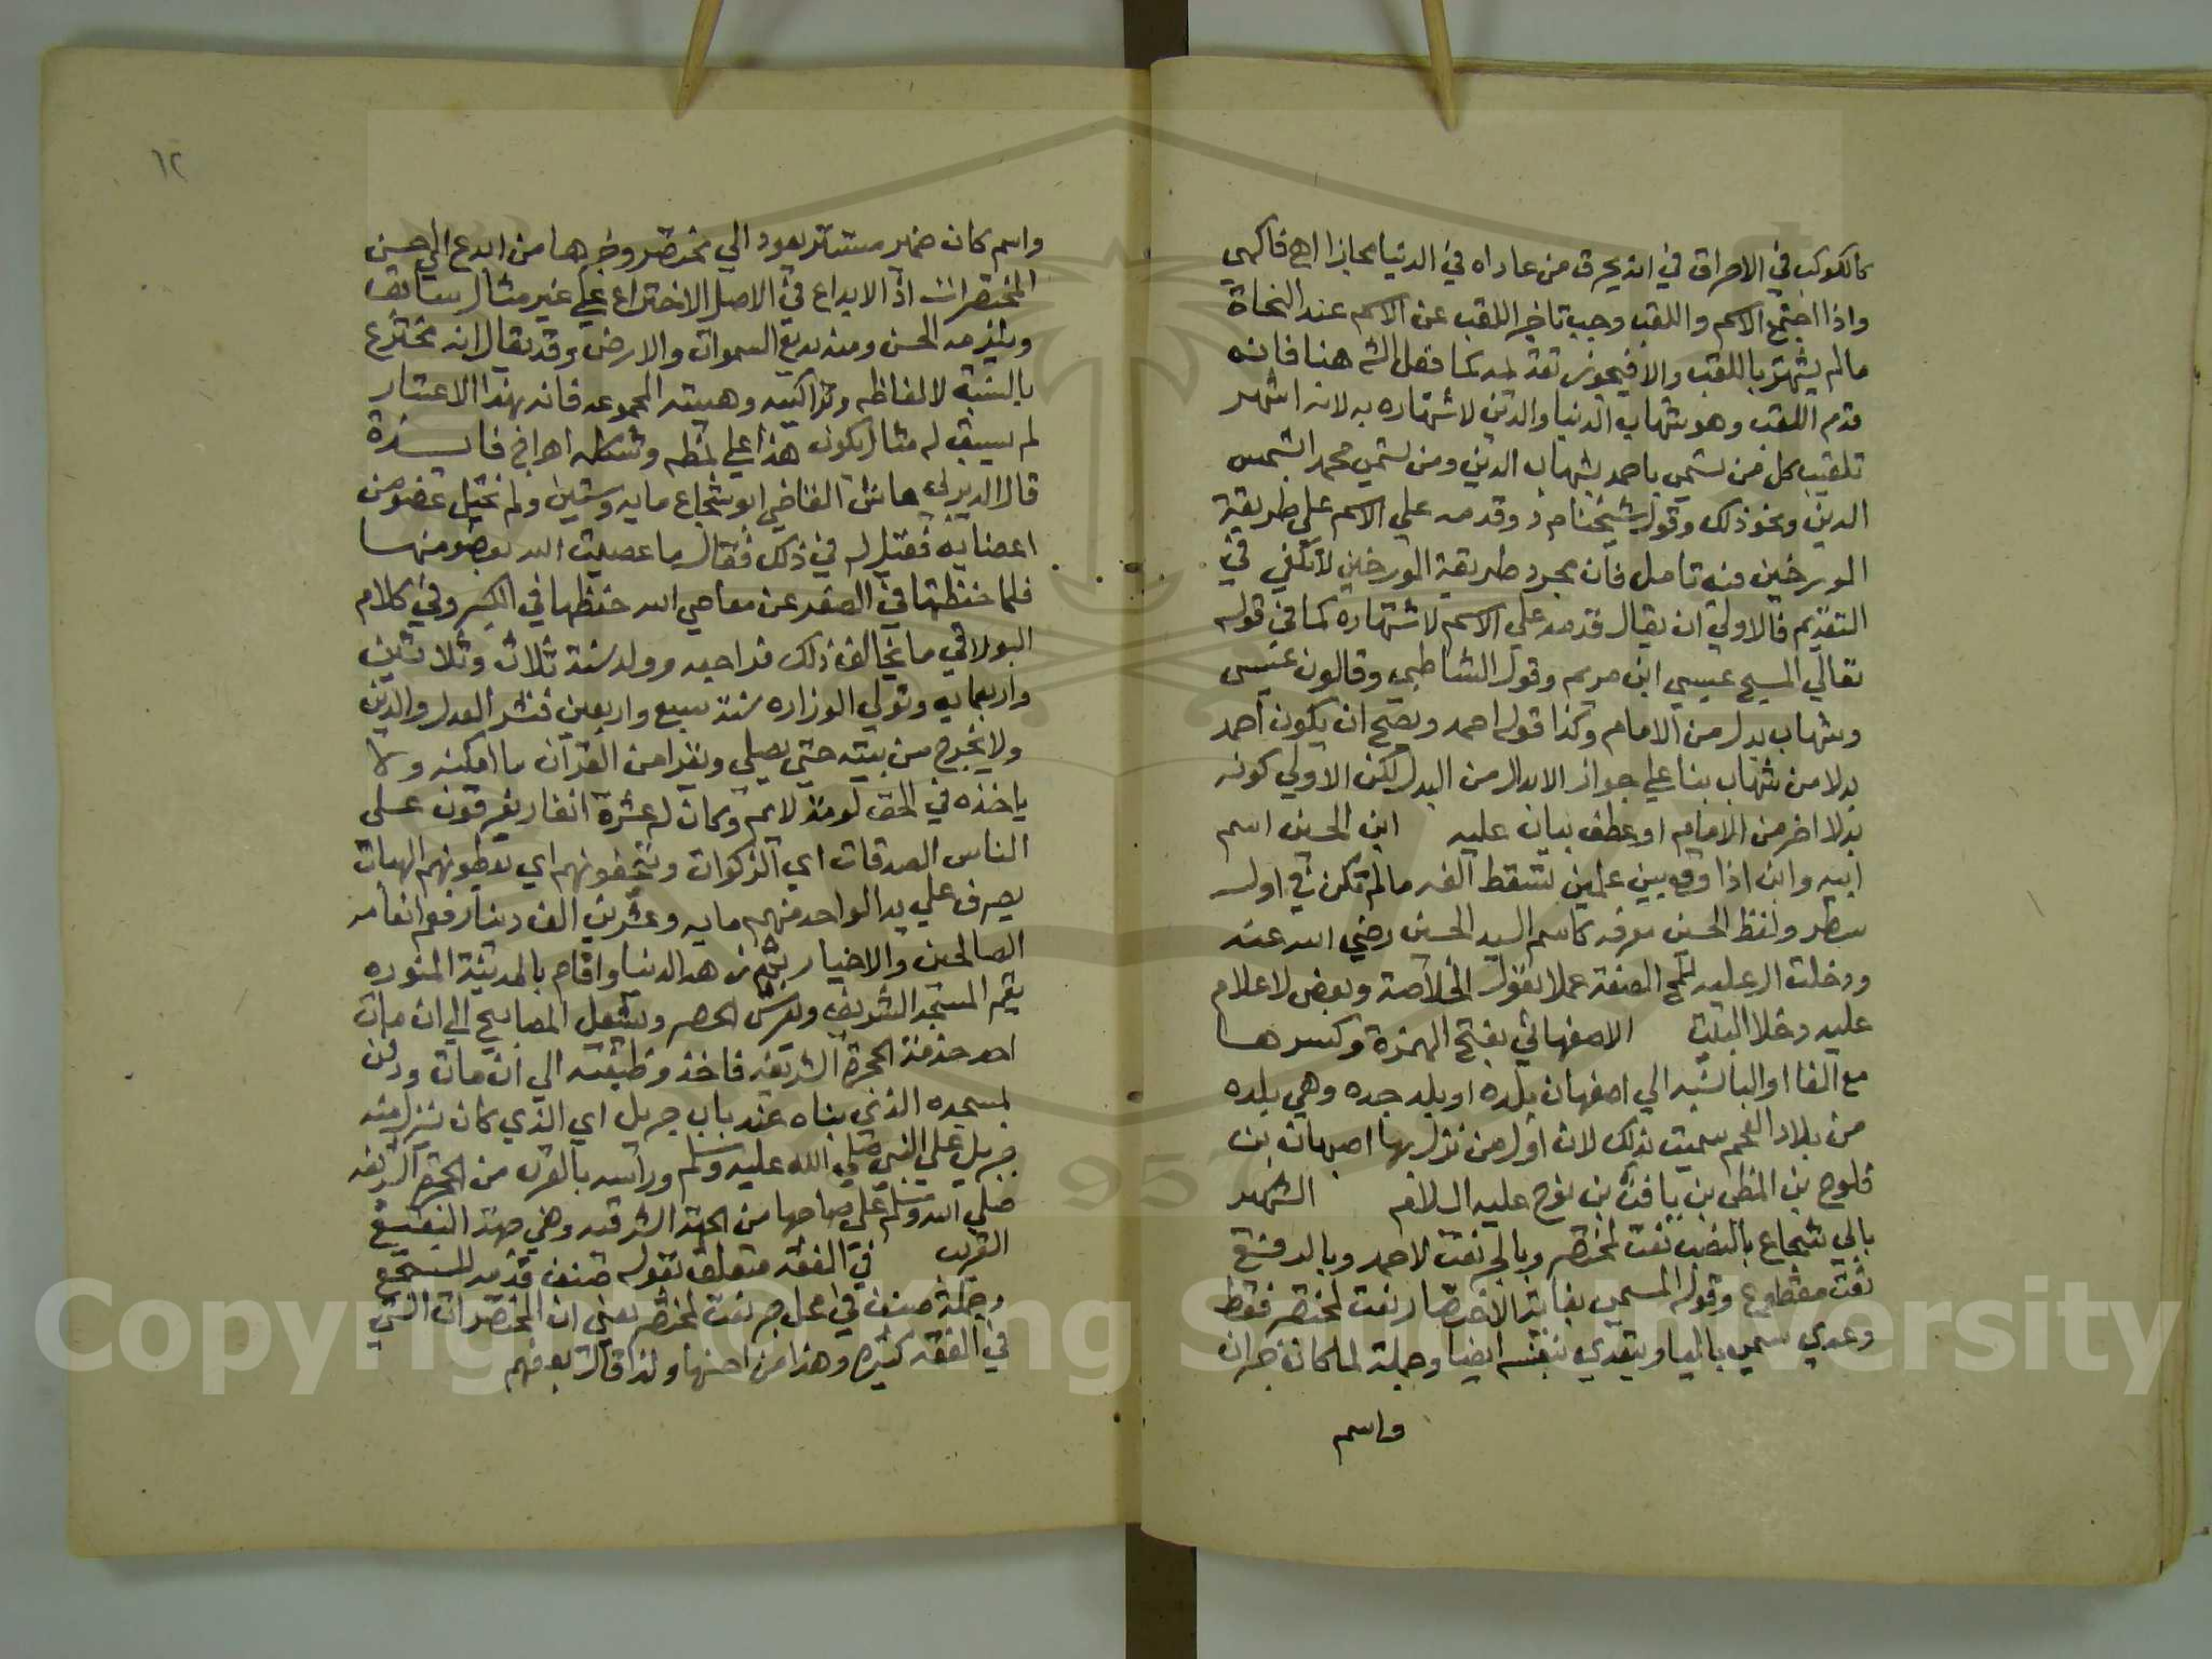 كالكوكب في الاحراق في انه يحرق من عاداه في الدنيا مجازا اهـ فاكهي
واذا اجتمع الاسم واللقب وجب تاخير اللقب عن الاسم عند النحاة
ما لم يشتهر باللقب والا فيجوز تقديمه كما فعل الش هنا فانه
قدم اللقب وهو شهاب الدنيا والدين لاشتهاره به لانه اشتهر
تلقيب كل من يسمي باحمد بشهاب الدين ومن يسمي محمد بشمس
الدين ونحو ذلك وقول شيخنا م د وقدمه علي الاسم علي طريقة
المورخين فيه تامل فان مجرد طريقة المورخين لا تكفي في
التقديم فالاولي ان يقال قدمه علي الاسم لاشتهاره كما في قوله
تعالي المسيح عيسي ابن مريم وقول الشاطبي وقالون عيسى
وشهاب بدل من الامام وكذا قوله احمد ويصح ان يكون احمد
بدلا من شهاب بنا علي جواز الابدال من البدل لكن الاولي كونه
بدلا اخر من الامام او عطف بيان عليه ابن الحسين اسم
ابيه وابن اذا وقع بين علمين تسقط الفه ما لم تكن في اول
سطر ولفظ الحسين معرفه كاسم السيد الحسين رضي الله عنه
ودخلت ال عليه للمح الصفة عملا بقول الخلاصة وبعض لاعلام
عليه دخلا البيت الاصفهاني بفتح الهمزة وكسرها
مع الفا او البا نسبه الي اصفهان بلده او بلد جده وهي بلده
من بلاد العجم سميت بذلك لان اول من نزل بها اصبهان بن
فلوح بن المطي بن يافث بن نوح عليه السلام الشهير
بابي شجاع بالنصب نعت لمختصر وبالجر نعت لاحمد وبالرفع
نعت مقطوع وقوله المسمي بغاية الاختصار نعت لمختصر فقط
وعدي سمي بالبا ويتعدي بنفسه ايضا وجملة لما كان خبر ان
واسم
١٢
واسم كان ضمير مستتر يعود الي مختصر وخبرها من ابدع اي احسن
المختصرات اذ الابداع في الاصل الاختراع علي غير مثال سابق
ويلزمه الحسن ومنه بديع السموات والارض وقد يقال انه مخترع
بالنسبة لالفاظه وتراكيبه وهيئته المجموعه فانه بهذا الاعتبار
لم يسبق له مثال يكون هذا علي نمطه وشكله اهـ اج فايدة
قال الديربي عاش القاضي ابو شجاع مايه وستين ولم يختل عضو من
اعضايه فقيل له في ذلك فقال ما عصيت الله بعضو منها
فلما حفظتها في الصغر عن معاصي الله حفظها في الكبر وفي كلام
البولاقي ما يخالف ذلك فراجعه وولد سنة ثلاث وثلاثين
واربعمايه وتولي الوزاره سنة سبع واربعين فنشر العدل والدين
ولا يخرج من بيته حتي يصلي ويقرا من القرآن ما امكنه ولا
ياخذه في الحق لومة لايم وكان له عشرة انفار يفرقون على
الناس الصدقات اي الزكوات ويتحفونهم اي يعطونهم الهبات
يصرف علي يد الواحد منهم مايه وعشرين الف دينار فعم انعامه
الصالحين والاخيار ثم زهد الدنيا واقام بالمدينة المنوره
يقم المسجد الشريف ويفرش الحصر ويشعل المصابيح الي ان مات
احد خدمة الحجرة الشريفه فاخذ وظيفته الي ان مات ودفن
بمسجده الذي بناه عند باب جبريل اي الذي كان ينزل منه
جبريل علي النبي صلي الله عليه وسلم وراسه بالقرب من الحجرة الشريفه
صلي الله وسلم علي صاحبها من الجهة الشرقيه وهي جهة البقيع
القريب في الفقه متعلق بقوله صنف قدمه للسجع
وجملة صنف في محل جر نعت لمختصر يعني ان المختصرات التي
في الفقه كثيره وهذا من احسنها ولذا قال بعضهم
Copyright © King Saud University
1957